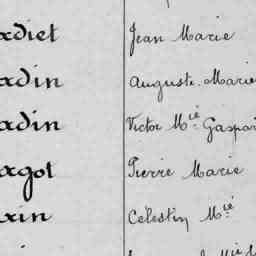 adiet Jean Marie
adin Auguste Marie
adin Victor M.ie Gaspar
agot Pierre Marie
xin Célestin M.ie